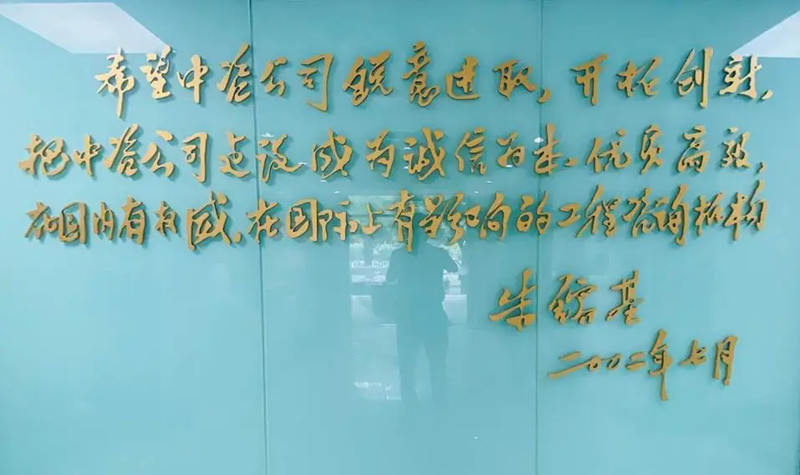 希望中咨公司锐意进取，开拓创新，
把中咨公司建设成为诚信为本、优质高效，
在国内有权威、在国际上有影响的工程咨询机构
朱镕基
二〇〇二年七月